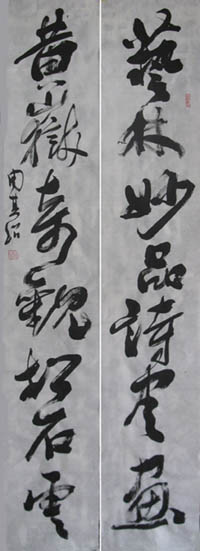 藝林妙品詩書畫
黄嶽奇觀松石雲